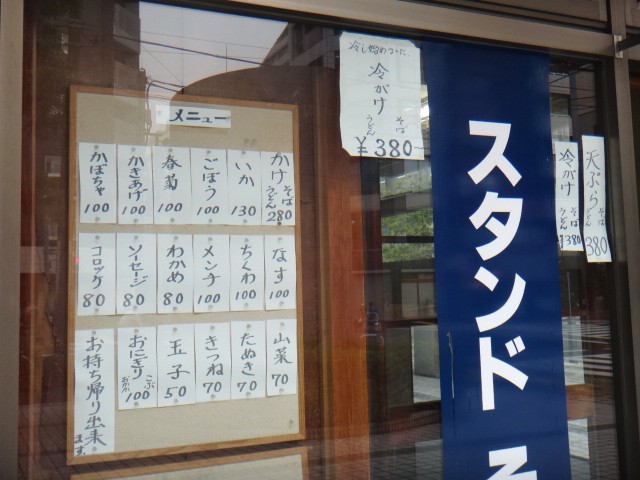 メニュー
かけ そば うどん 280
いか 130
ごぼう 100
春菊 100
かきあげ 100
かぼちゃ 100
なす 100
ちくわ 100
メンチ 100
わかめ 80
ソーセージ 80
コロッケ 80
山菜 70
たぬき 70
きつね 70
玉子 50
おにぎり こぶ おかか 100
お持ち帰り出来ます。
冷し始めました。
冷がけ
そば
うどん
¥380
スタンドそ
天ぷら そば うどん 380
冷がけ そば うどん ¥380